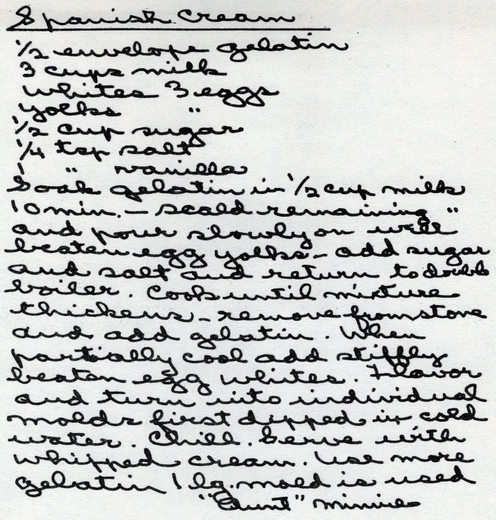 Spanish Cream
1/2 envelope gelatin
3 cups milk
Whites 3 eggs
Yolks "
1/2 cup sugar
1/4 tsp salt
1 " vanilla
Soak gelatin in 1/2 cup milk
10 min. - scald remaining "
and pour slowly on well
beaten egg yolks - add sugar
and salt and return to double
boiler. Cook until mixture
thickens - remove from stove
and add gelatin. When
partially cool add stiffly
beaten egg whites. Flavor
and turn into individual
molds first dipped in cold
water. Chill. Serve with
whipped cream. Use more
gelatin 1 lg. mold is used
"Aunt" Minnie